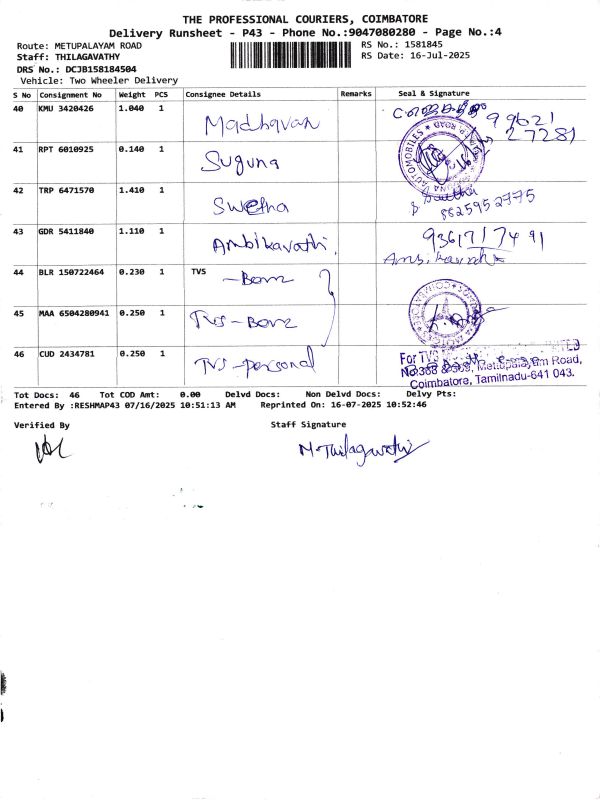 THE PROFESSIONAL COURIERS, COIMBATORE
Delivery Runsheet - P43 - Phone No.:9047080280 - Page No.:4
Route: METUPALAYAM ROAD
RS No.: 1581845
Staff: THILAGAVATHY
RS Date: 16-Jul-2025
DRS No.: DCJB158184504
Vehicle: Two Wheeler Delivery
S No Consignment No Weight PCS Consignee Details Remarks Seal & Signature
40 KMU 3420426 1.040 1 Madhavan
99621
27281
41 RPT 6010925 0.140 1 Suguna
AUTOMOBILES
42 TRP 6471570 1.410 1 Swetha
8825952775
43 GDR 5411840 1.110 1 Ambikavathi
9361717491
44 BLR 150722464 0.230 1 TVS
45 MAA 6504280941 0.250 1
46 CUD 2434781 0.250 1 TVS-personal
For TVS
Mettupalayam Road,
Coimbatore, Tamilnadu-641 043.
Tot Docs: 46 Tot COD Amt: 0.00 Delvd Docs: Non Delvd Docs: Delvy Pts:
Entered By :RESHMAP43 07/16/2025 10:51:13 AM Reprinted On: 16-07-2025 10:52:46
Verified By
Staff Signature
M.Thilagavathi